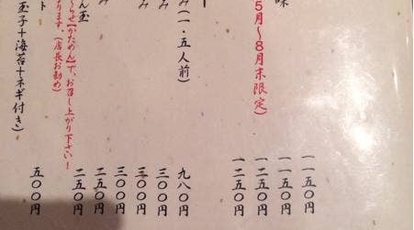 味
一一五〇円
一一五〇円
5月～8月末限定)
一二五〇円
一二五〇円
み(一・五人前)
九八〇円
み
三〇〇円
み
三〇〇円
三〇〇円
ん玉
二五〇円
らせ【かためん】で、お召し上がり下さい!
ります。(店長お勧め)
二五〇円
ト
玉子+海苔+ネギ付き)
五〇〇円